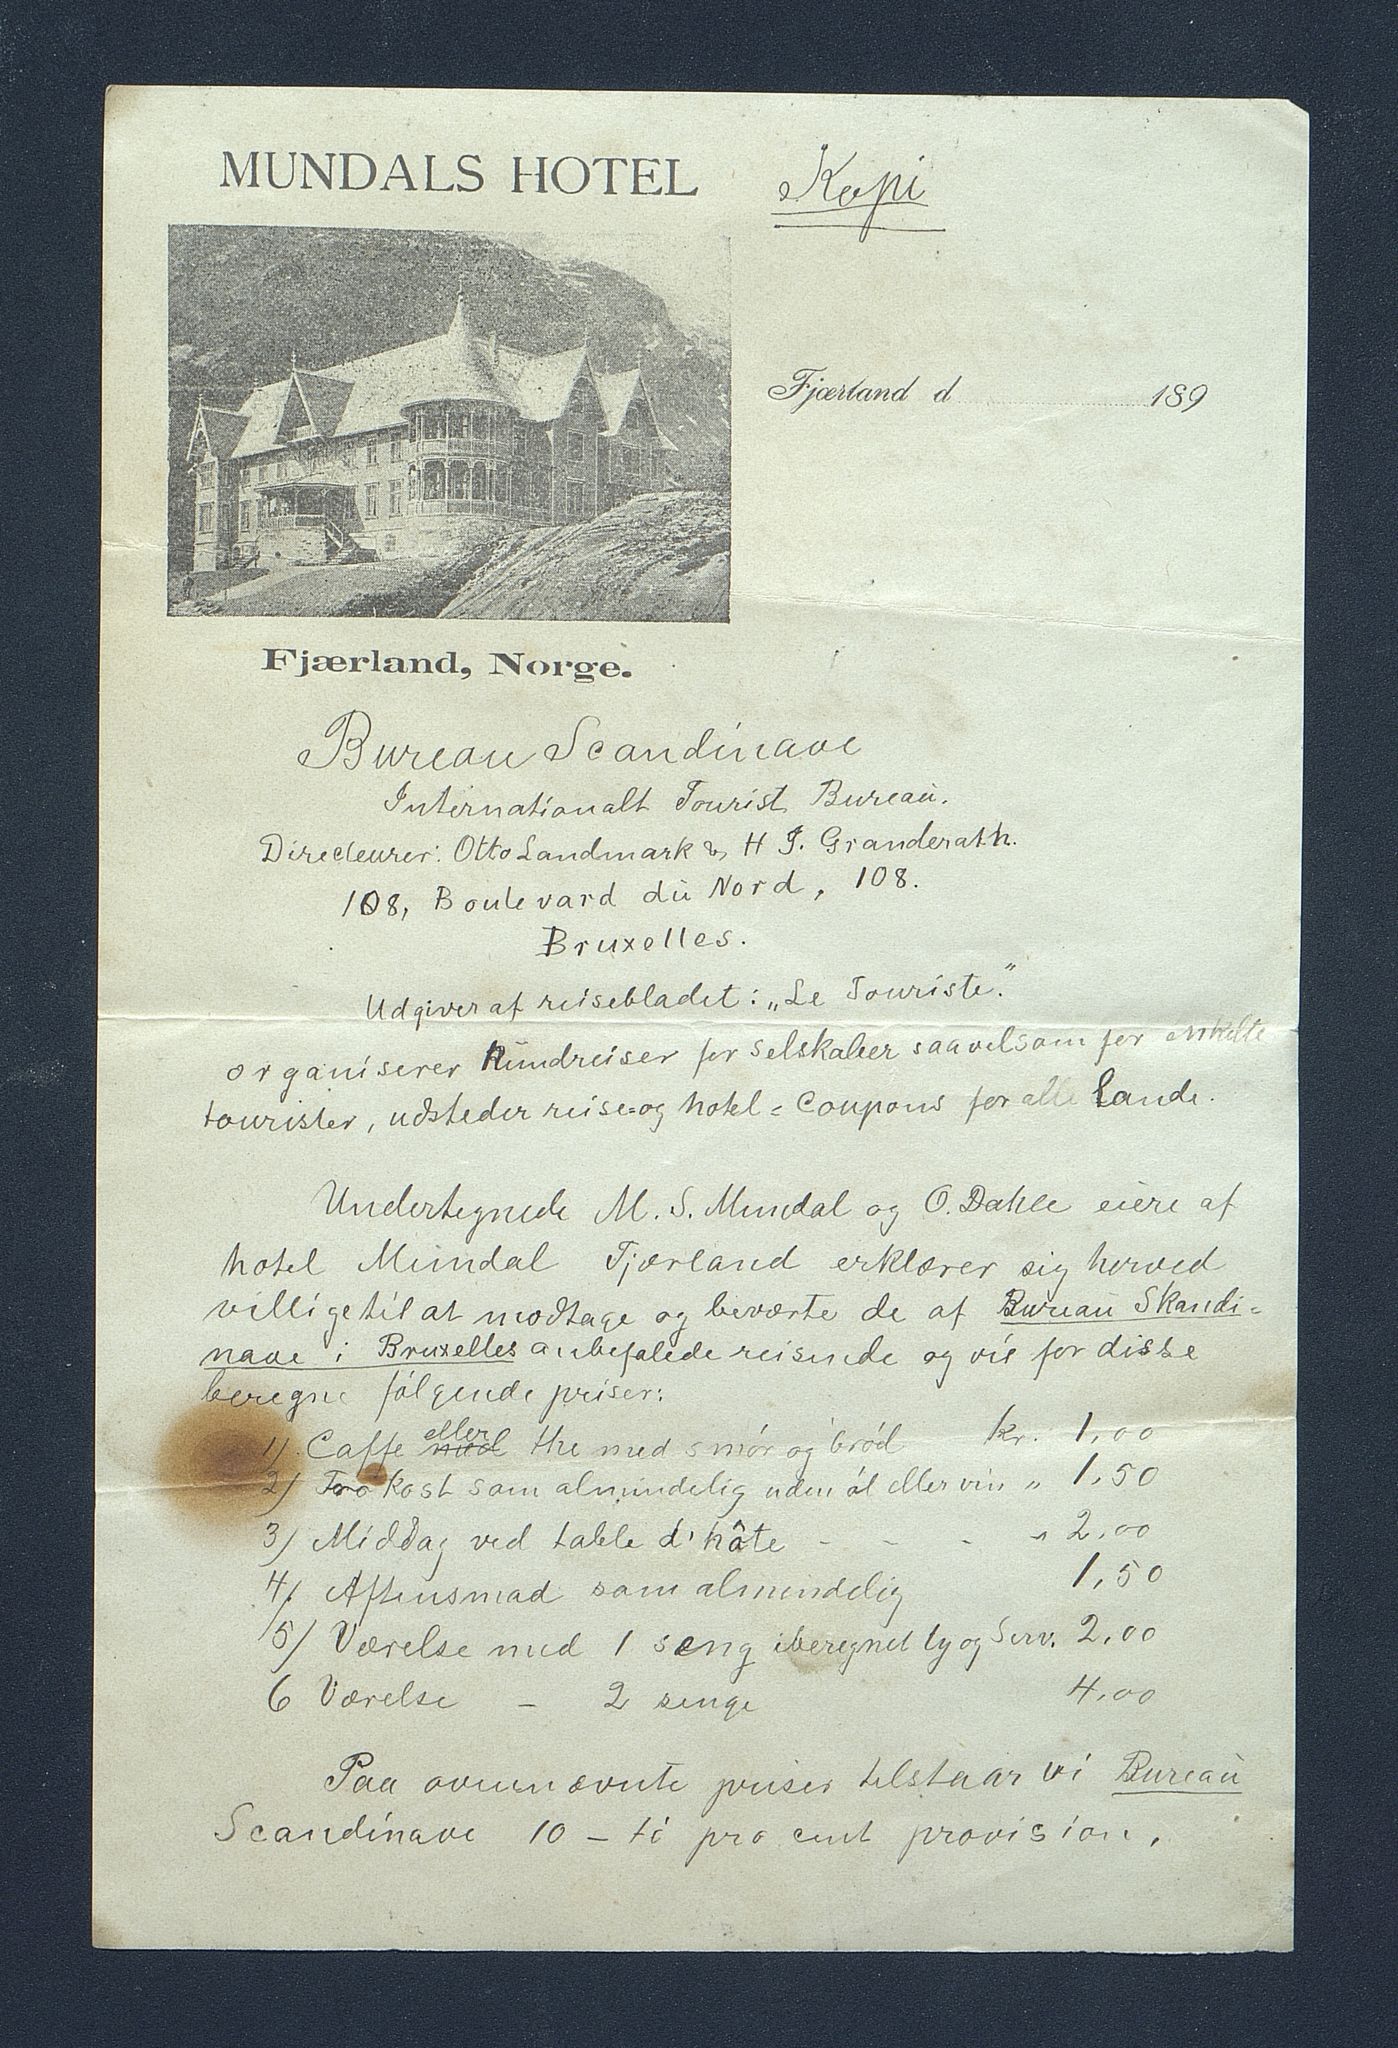 MUNDALS HOTEL
Kopi
Fjærland d 189
Fjærland, Norge.
Bureau Scandinave
Internationalt Tourist Bureau.
Directeurer: Otto Landmark & H J. Granderath.
108, Boulevard du Nord, 108.
Bruxelles.
Udgiver af reisebladet: „Le Touriste."
organiserer Rundreiser for selskaber saavelsom for enkelte
tourister, udsteder reise=og hotel=Coupons for alle Lande.
Undertegnede M. S. Mundal og O. Dahle eiere af
hotel Mundal Fjærland erklærer sig herved
villige til at modtage og beværte de af Bureau Skandi=
nave i Bruxelles anbefalede reisende og vis for disse
beregne følgende priser:
1) Caffe med eller the med smør og brød kr. 1,00
2) Frokost som almindelig uden øl eller vin „ 1,50
3) Middag ved table d'hôte - - - „ 2,00
4) Aftensmad som almindelig 1,50
5) Værelse med 1 seng iberegnet ly og Serv. 2,00
6 Værelse - 2 senge 4,00
Paa ovennævnte priser tilstaar vi Bureau
Scandinave 10 - ti pro cent provision.